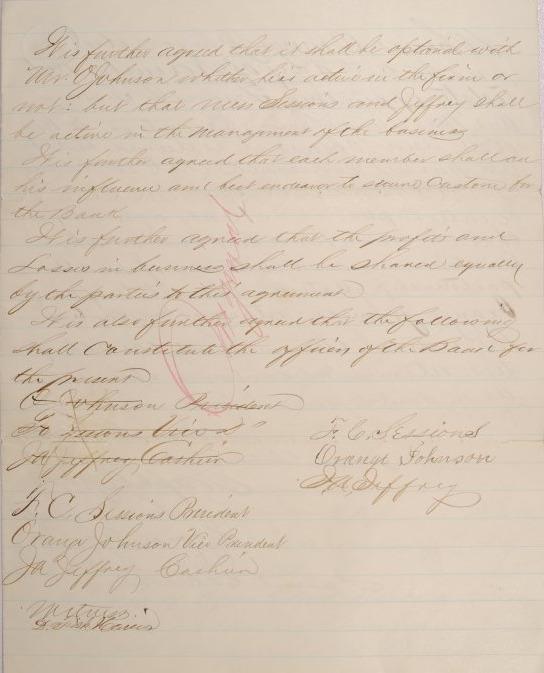 It is further agreed that it shall be optional with
Mr O Johnson whether he is active in the firm or
not: but that Mess Sessions and Jeffrey shall
be active in the management of the business
It is further agreed that each member shall
his influence and best endeavor to secure Custom for
the Bank
It is further agreed that the profits and
Losses in business shall be shared equally
by the parties to this agreement
It is also further agreed that the following
shall Constitute the officers of the Bank for
the present
O Johnson President
F C Sessions Vice "
JA Jeffrey Cashier
F. C. Sessions
Orange Johnson
JA Jeffrey
F. C. Sessions President
Orange Johnson Vice President
JA Jeffrey Cashier
Witness